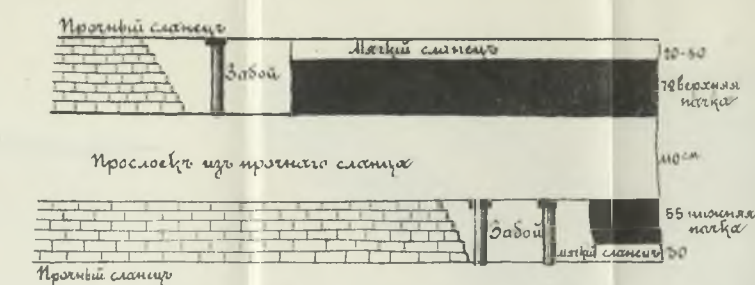 Прочный сланецъ
Мягкій сланецъ
Забой
72 верхняя
пачка
Прослоекъ изъ прочнаго сланца
110 см
55 нижняя
пачка
Забой
мягкій сланецъ
30
Прочный сланецъ